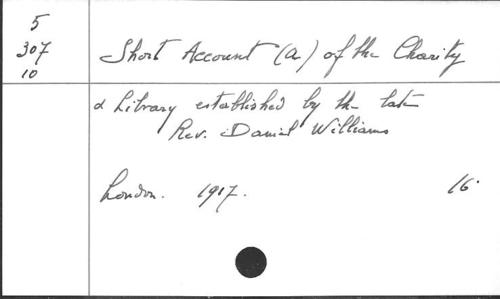 5
307
10
Short Account (a) of the Charity
& Library established by the late
Rev. Daniel Williams
London. 1917. 16.